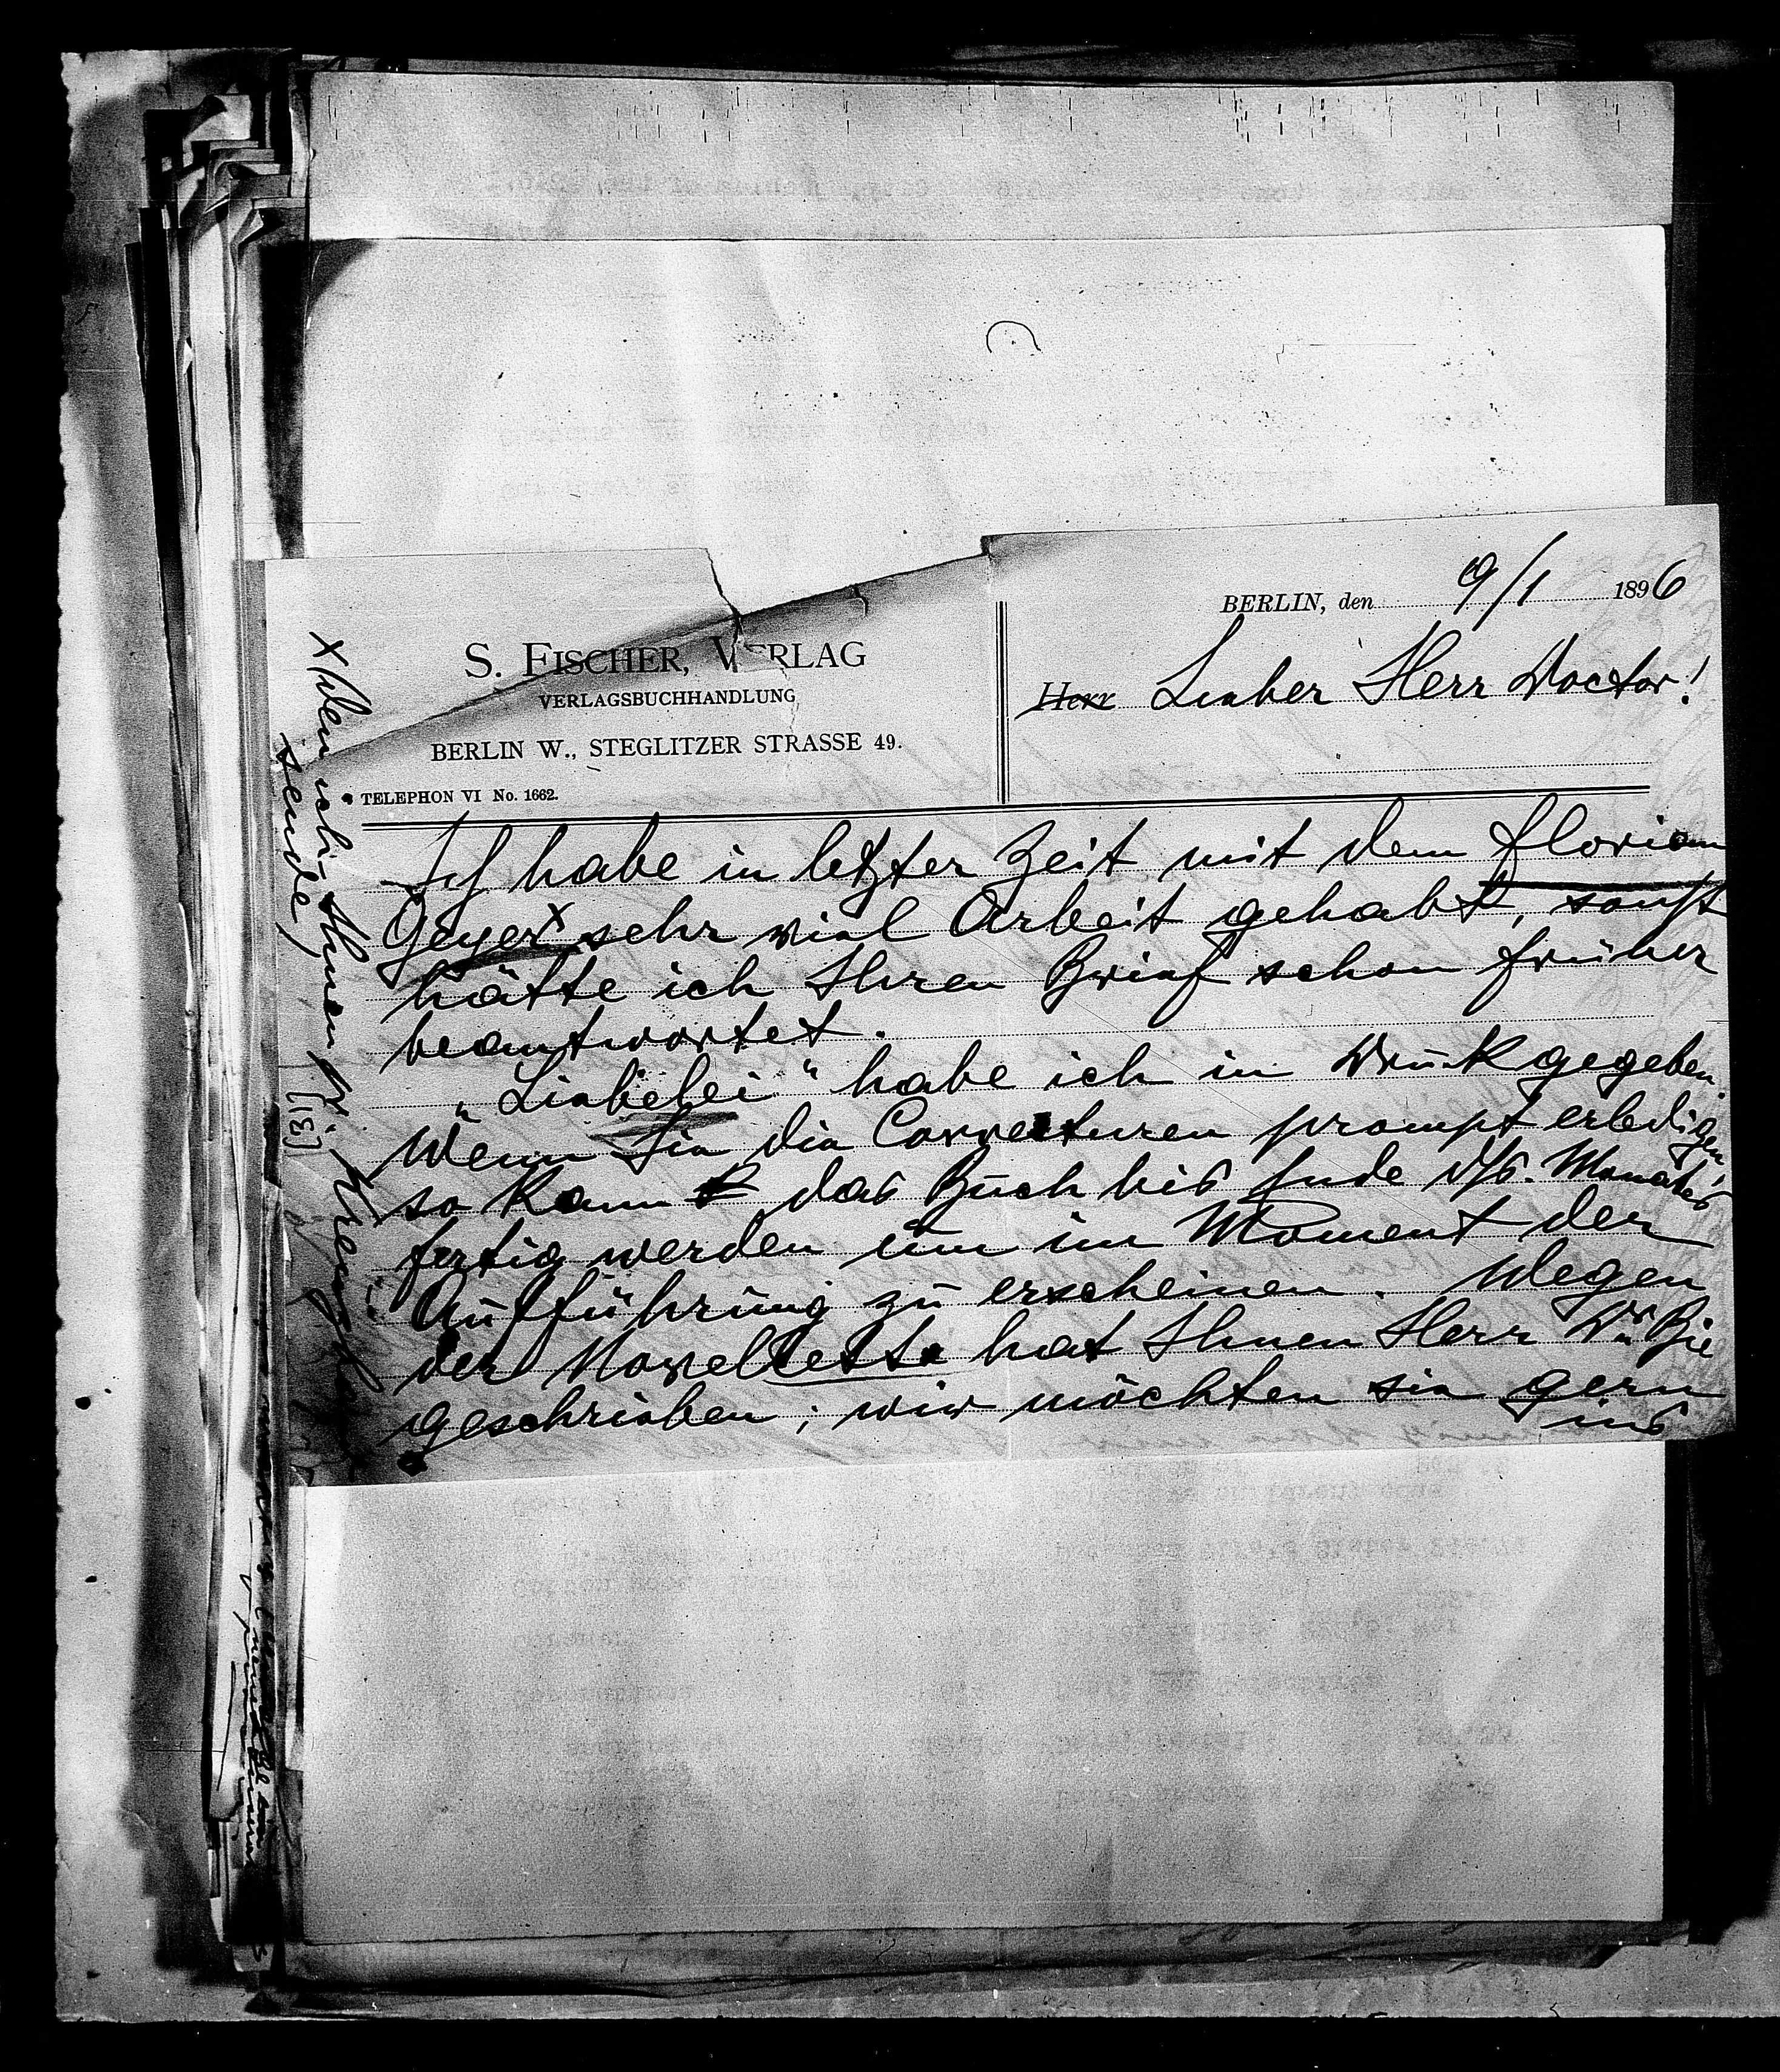 S. FISCHER, VERLAG
VERLAGSBUCHHANDLUNG
BERLIN W., STEGLITZER STRASSE 49.
TELEPHON VI No. 1662.
BERLIN, den 9/1 1896
Herr Lieber Herr Doctor!
Ich habe in letzter Zeit mit dem Florian
Geyer x sehr viel Arbeit gehabt, sonst
hätte ich Ihren Brief schon früher
beantwortet.
„Liebelei“ habe ich in Druck gegeben.
Wenn Sie die Correcturen prompt erledigen,
so kann das Buch bis Ende ds. Monats
fertig werden um im Moment der
Aufführung zu erscheinen. Wegen
der Novellette hat Ihnen Herr Dr Bie
geschrieben; wir möchten sie gern
ins
x (den ich Ihnen pr. Kreuzband
sende)
[13]